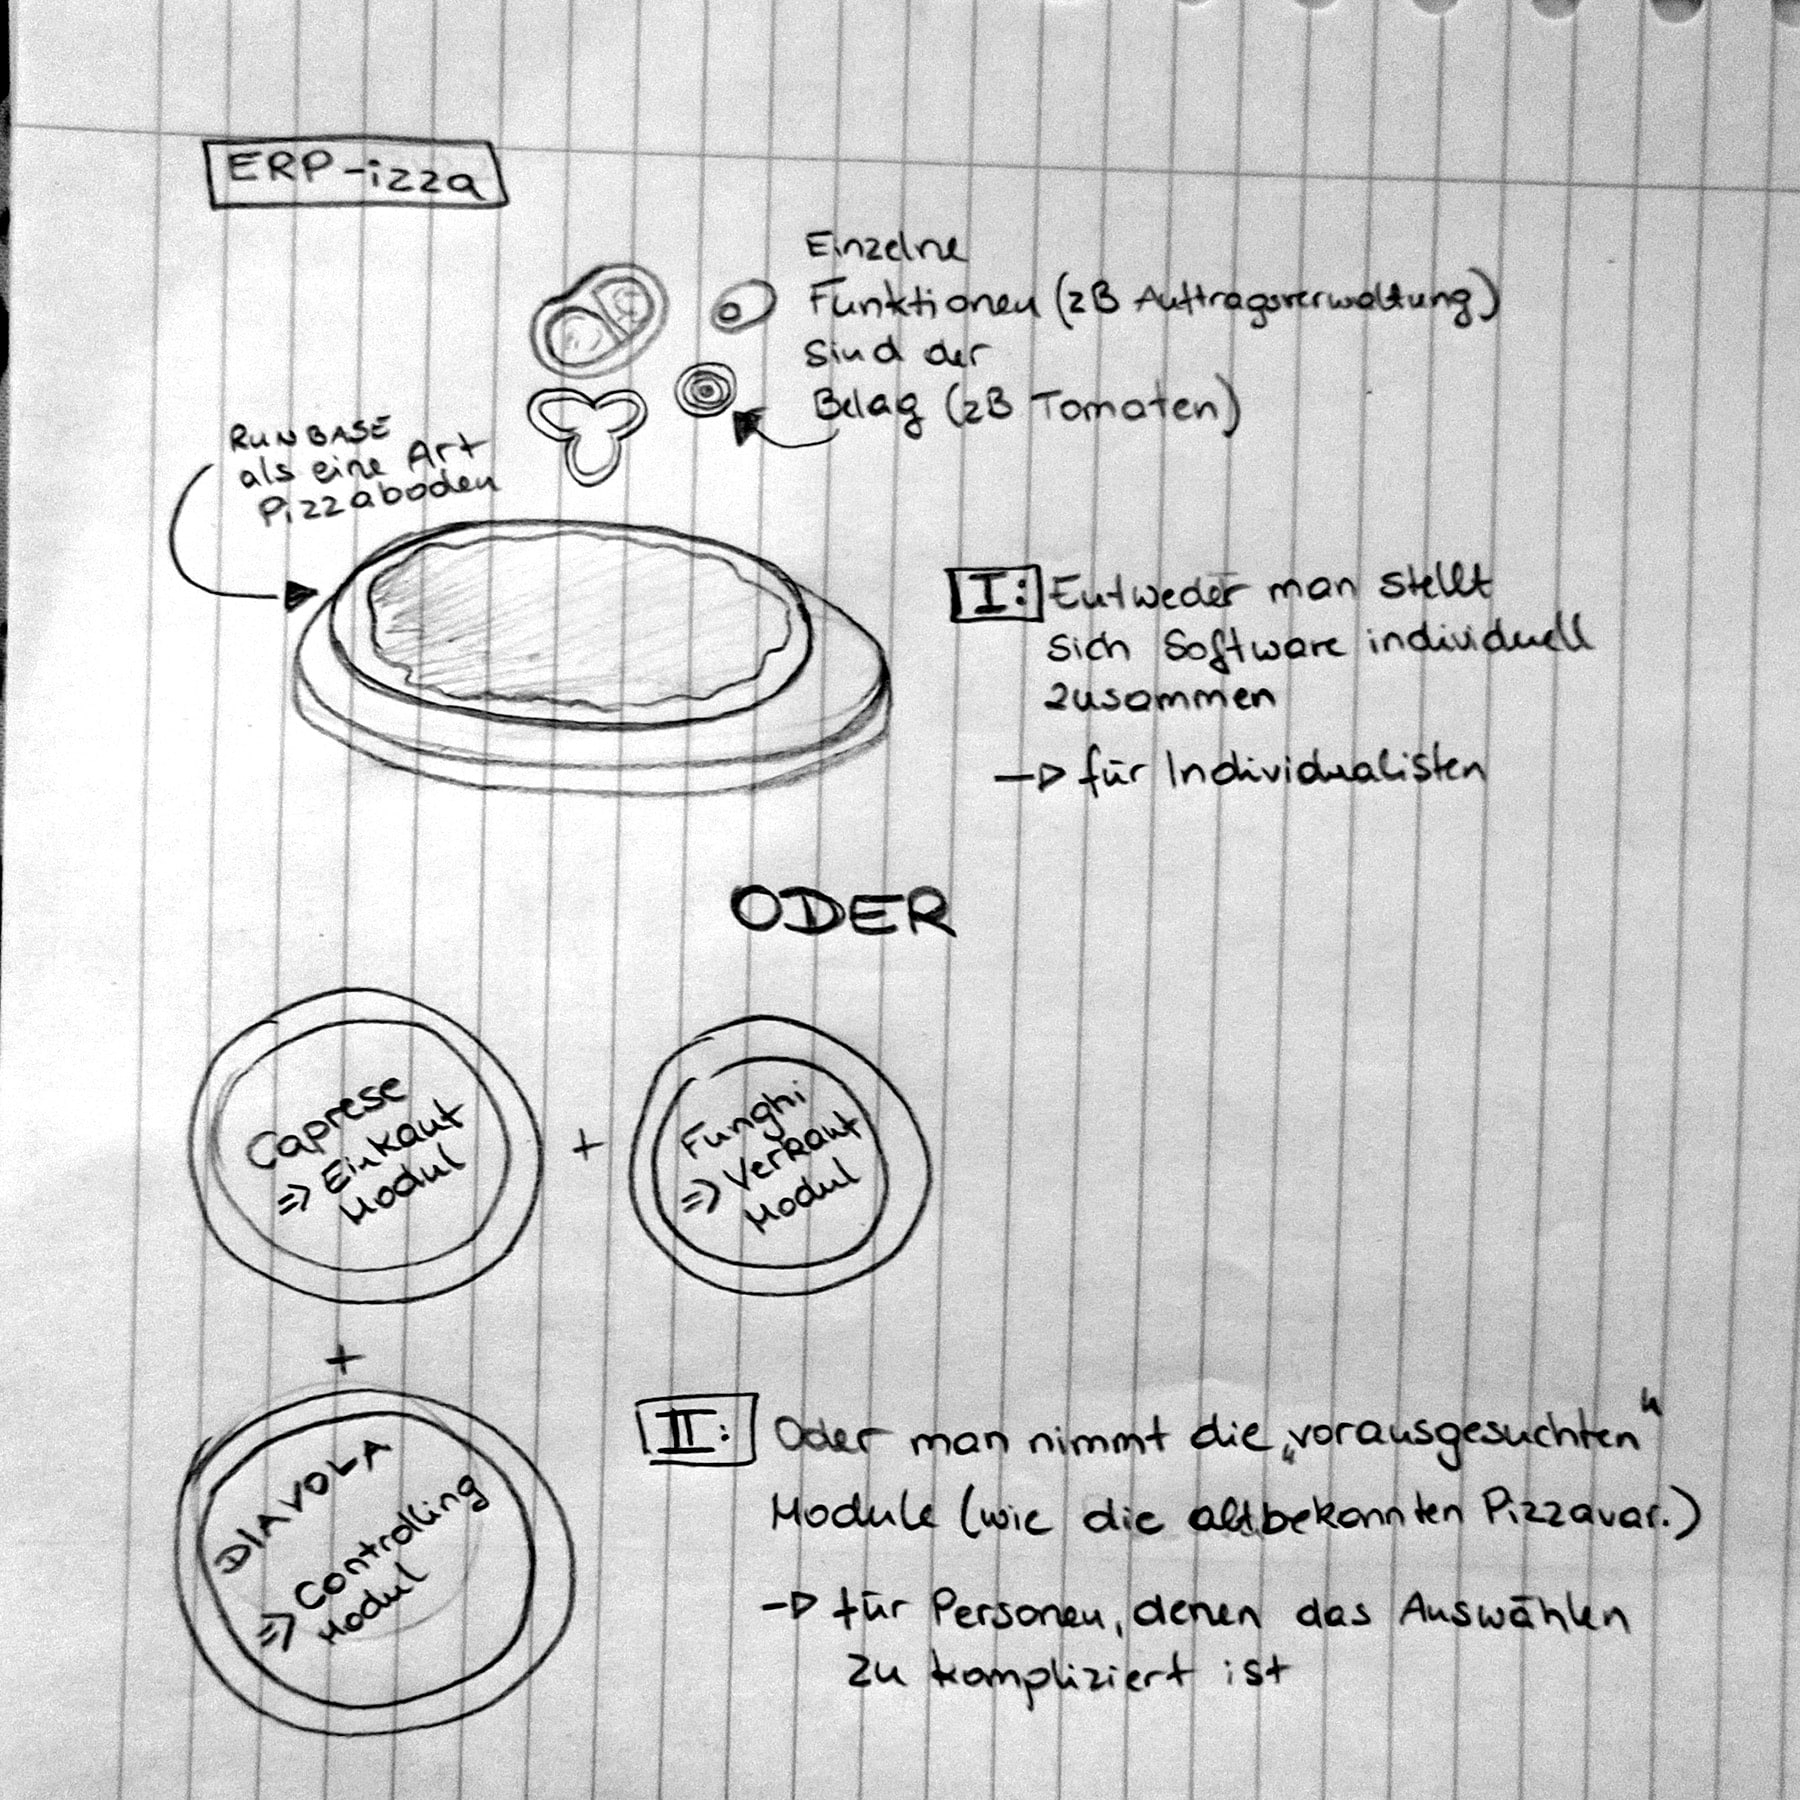 ERP-izza
Einzelne
Funktionen (zB Auftragsverwaltung)
sind der
Belag (zB Tomaten)
RUNBASE
als eine Art
Pizzaboden
I: Entweder man stellt
sich Software individuell
zusammen
→ für Individualisten
ODER
Caprese
=> Einkauf
Modul
+
Funghi
=> Verkauf
Modul
+
DIAVOLA
=> Controlling
Modul
II: Oder man nimmt die „vorausgesuchten“
Module (wie die altbekannten Pizzavar.)
→ für Personen, denen das Auswählen
zu kompliziert ist